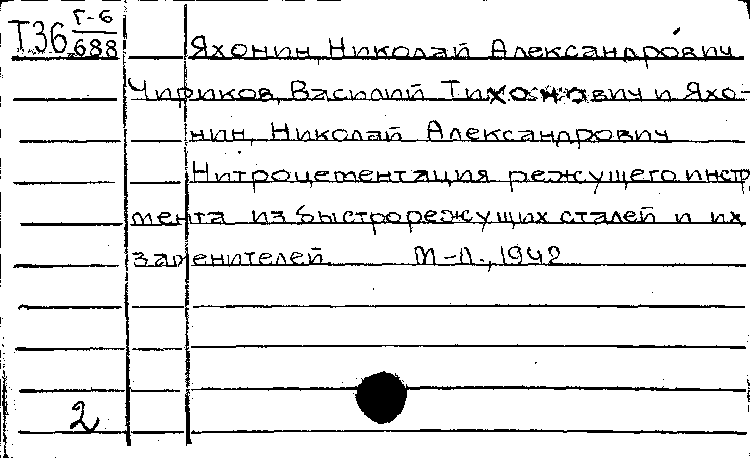 Т36 Г-6
688
Яхонин, Николай Александрович
Чириков, Василий Тихонович и Яхо-
нин, Николай Александрович
Нитроцементация режущего инстр
мента из быстрорежущих сталей и их
заменителей М-Л., 1942
2